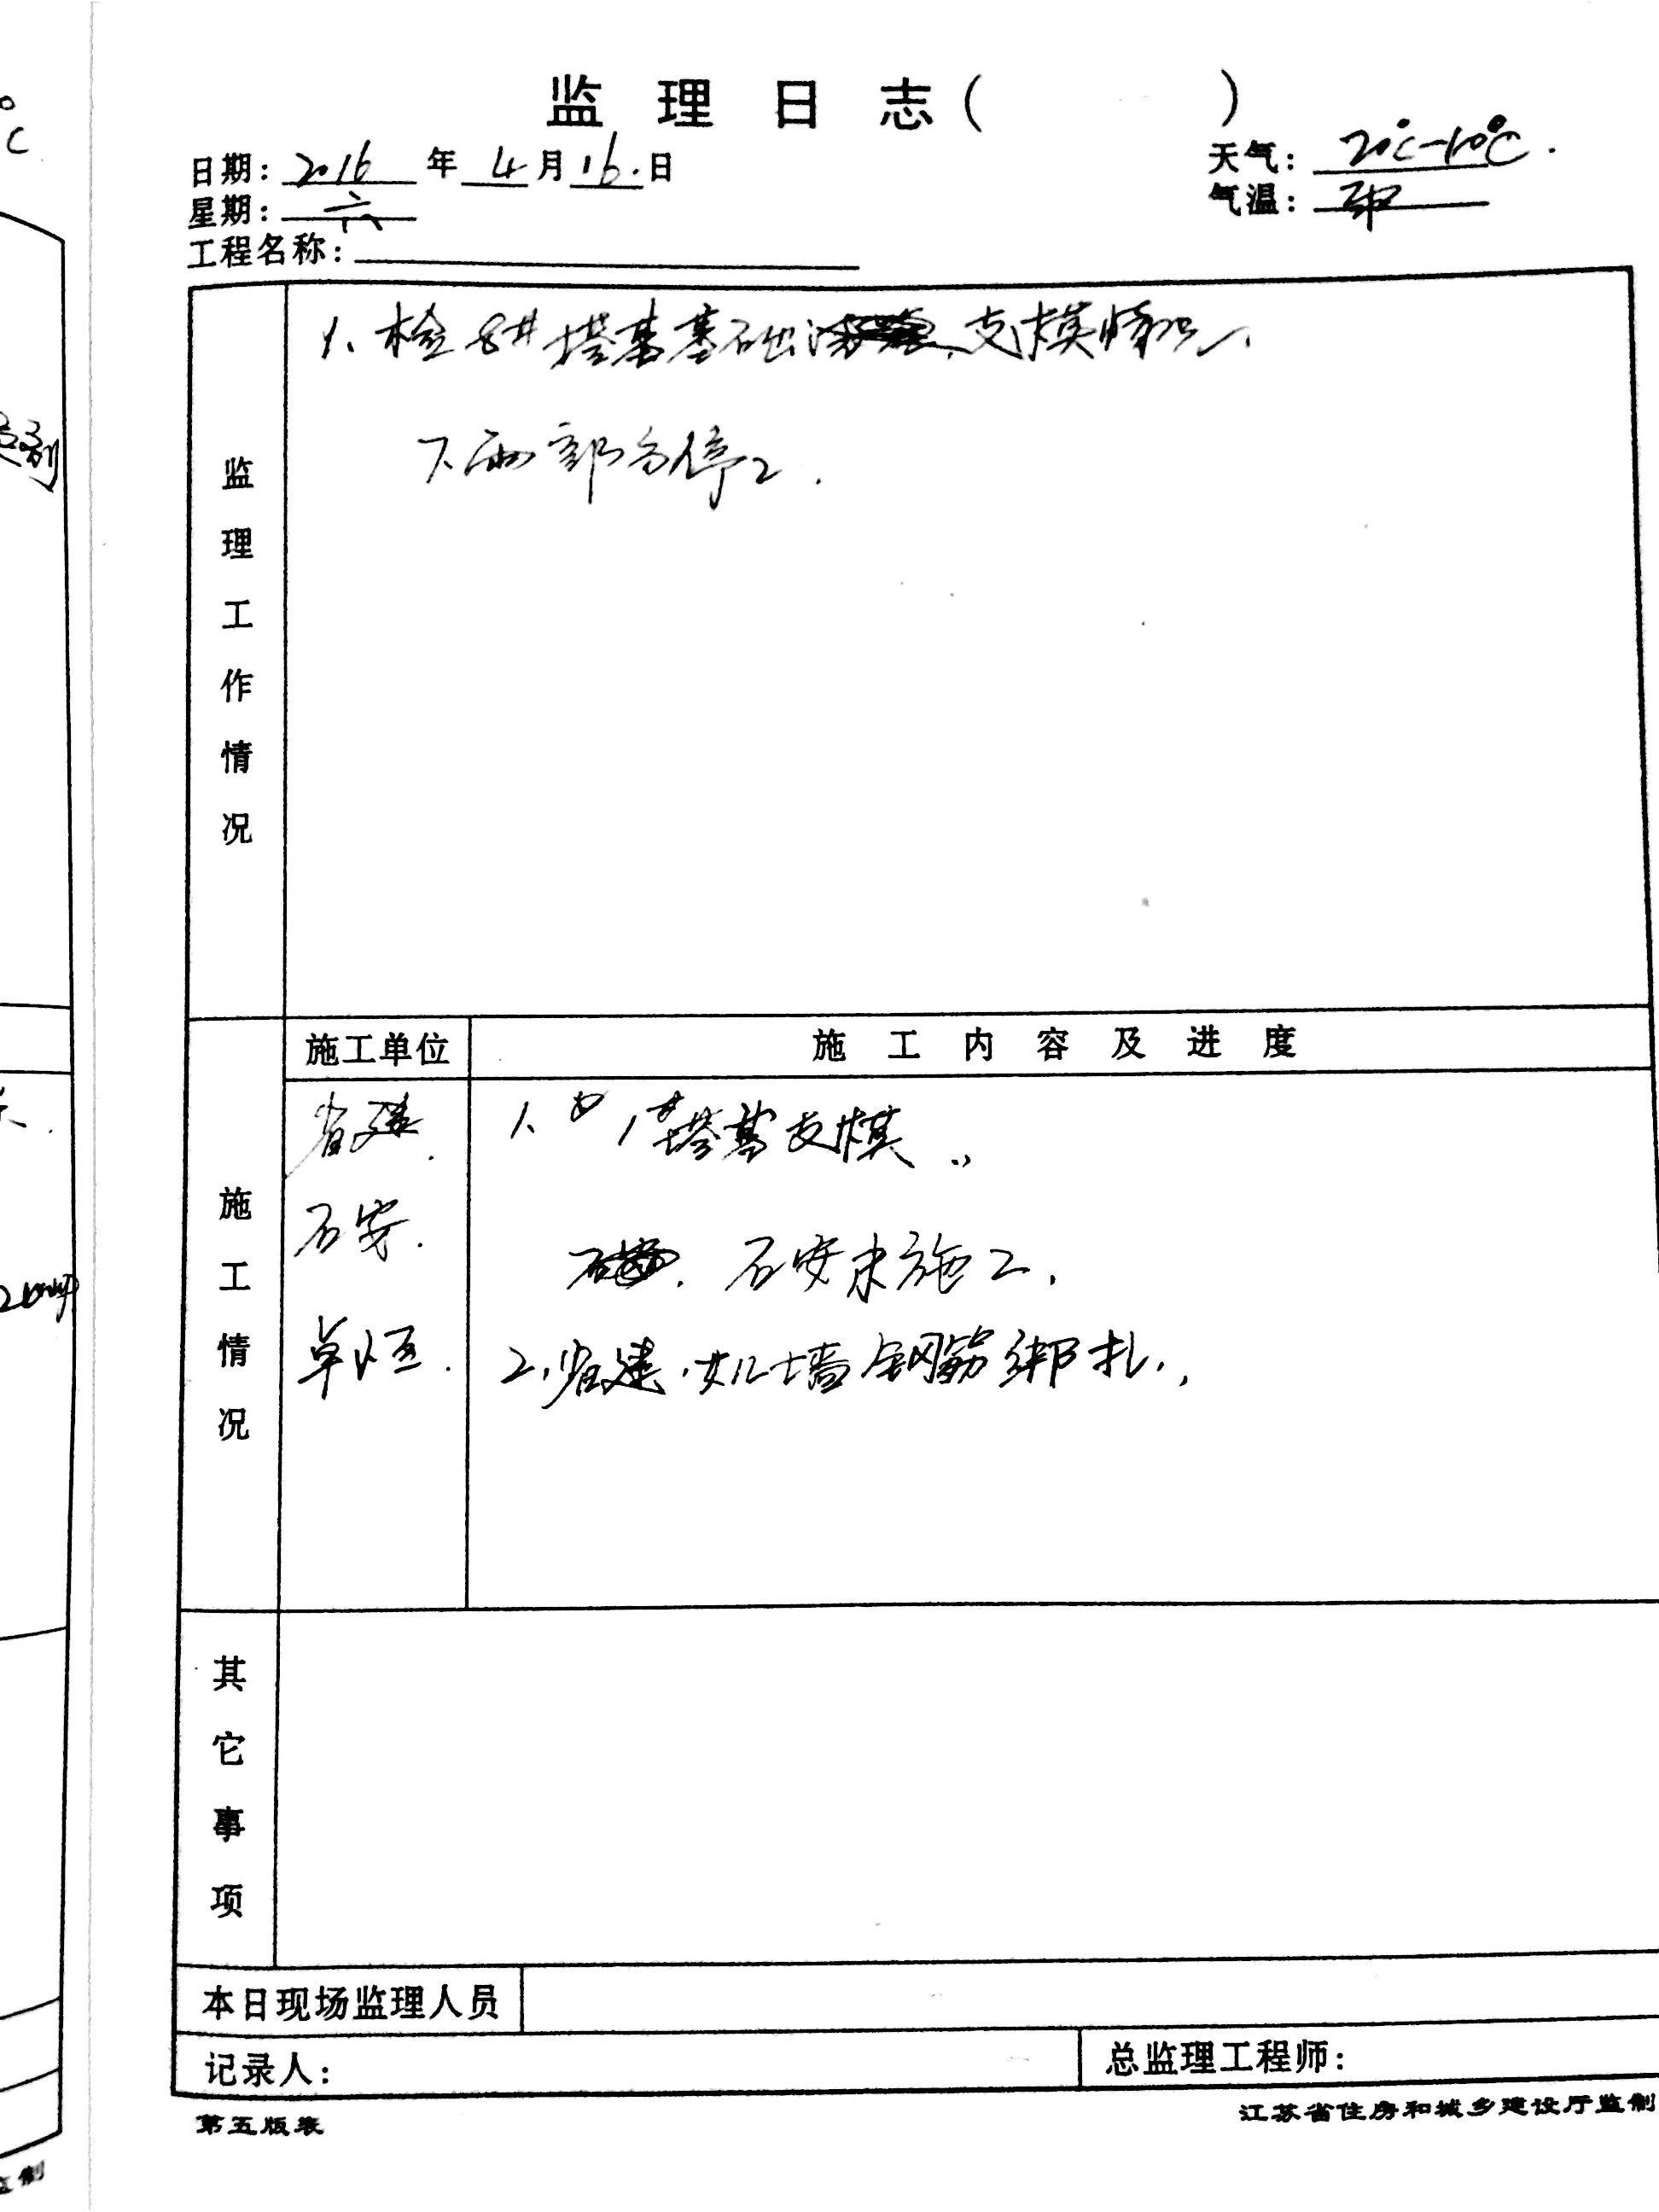 监理日志( )
日期: 2016 年 4 月 16. 日
天气: 20℃-10℃.
星期: 六
气温:
工程名称:
监理工作情况
1、检 8# 塔基基础 支模情况、
下雨部分停工.
施工情况
施工单位
施工内容及进度
省建.
1、 塔基支模
石安.
石安未施工.
卓恒.
2、省建. 墙钢筋绑扎.
其它事项
本日现场监理人员
记录人:
总监理工程师:
第五版表
江苏省住房和城乡建设厅监制